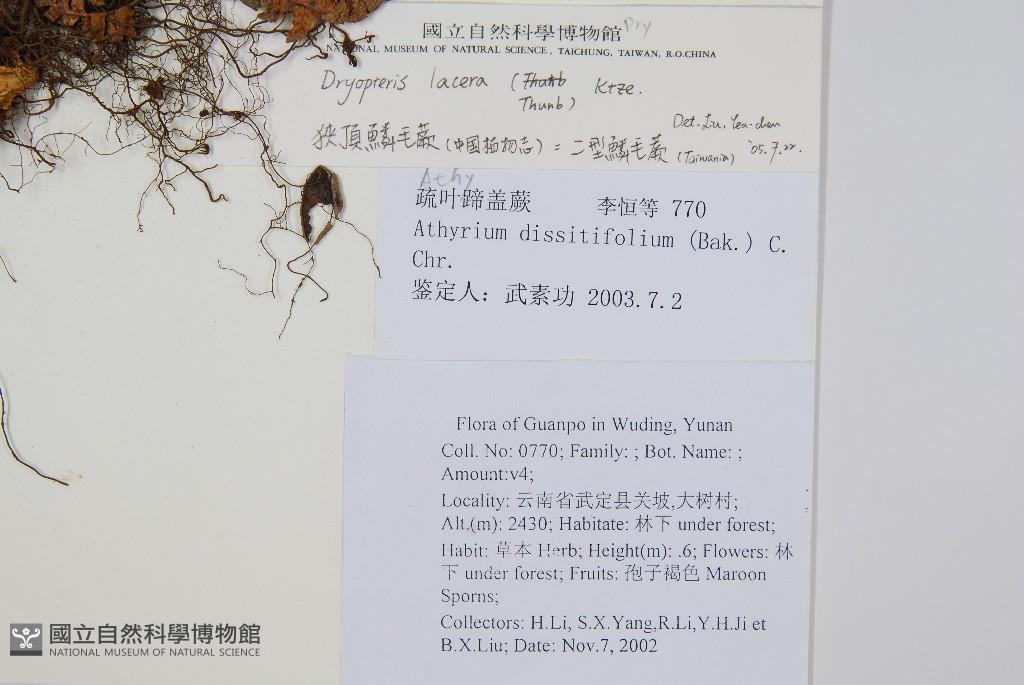 國立自然科學博物館 Dry
NATIONAL MUSEUM OF NATURAL SCIENCE, TAICHUNG, TAIWAN, R.O.CHINA
Dryopteris lacera (Thunb Ktze.
Thunb)
Det. Liu, Yea-chen
狹頂鱗毛蕨 (中国植物志) = 二型鱗毛蕨 (Taiwania) '05.7.22.
Athy
疏叶蹄盖蕨 李恒等 770
Athyrium dissitifolium (Bak.) C.
Chr.
鉴定人: 武素功 2003.7.2
Flora of Guanpo in Wuding, Yunan
Coll. No: 0770; Family: ; Bot. Name: ;
Amount:v4;
Locality: 云南省武定县关坡,大树村;
Alt.(m): 2430; Habitate: 林下 under forest;
Habit: 草本 Herb; Height(m): .6; Flowers: 林
下 under forest; Fruits: 孢子褐色 Maroon
Sporns;
Collectors: H.Li, S.X.Yang,R.Li,Y.H.Ji et
B.X.Liu; Date: Nov.7, 2002
國立自然科學博物館
NATIONAL MUSEUM OF NATURAL SCIENCE